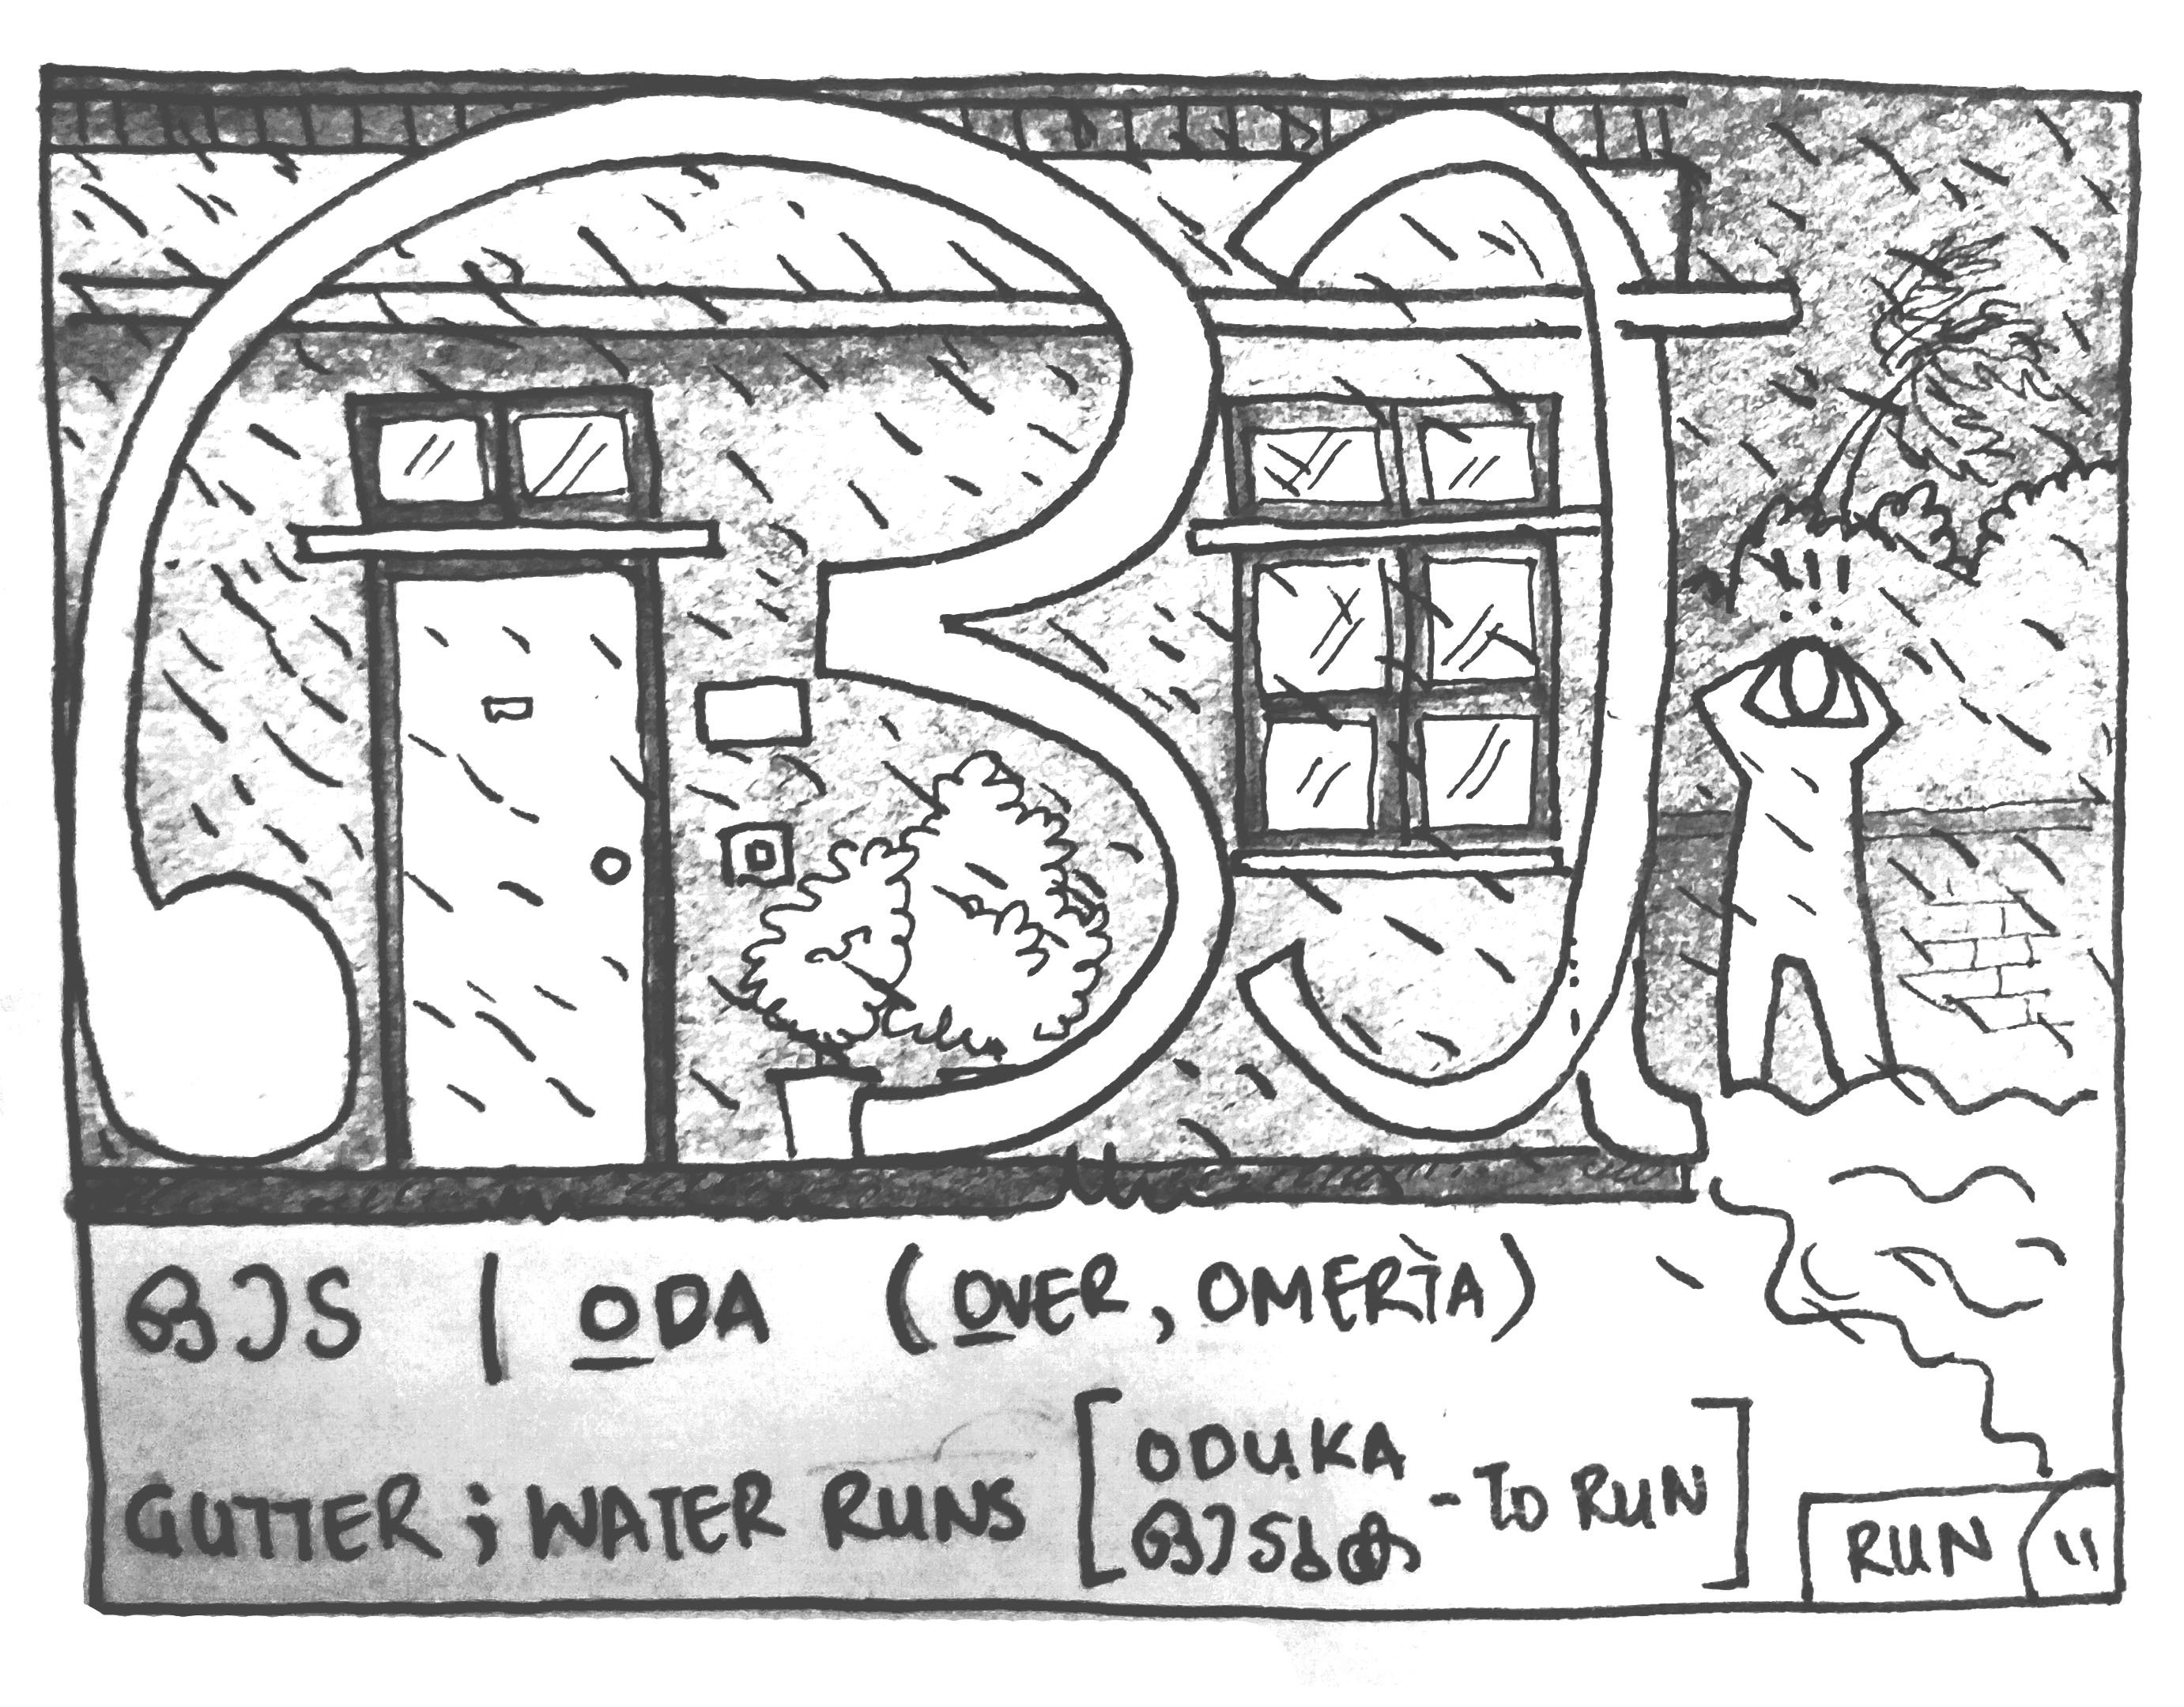 ഓ
!!!
ഓട | ODA (OVER, OMERTÀ)
GUTTER ; WATER RUNS [ODUKA
ഓടുക - TO RUN]
RUN 11